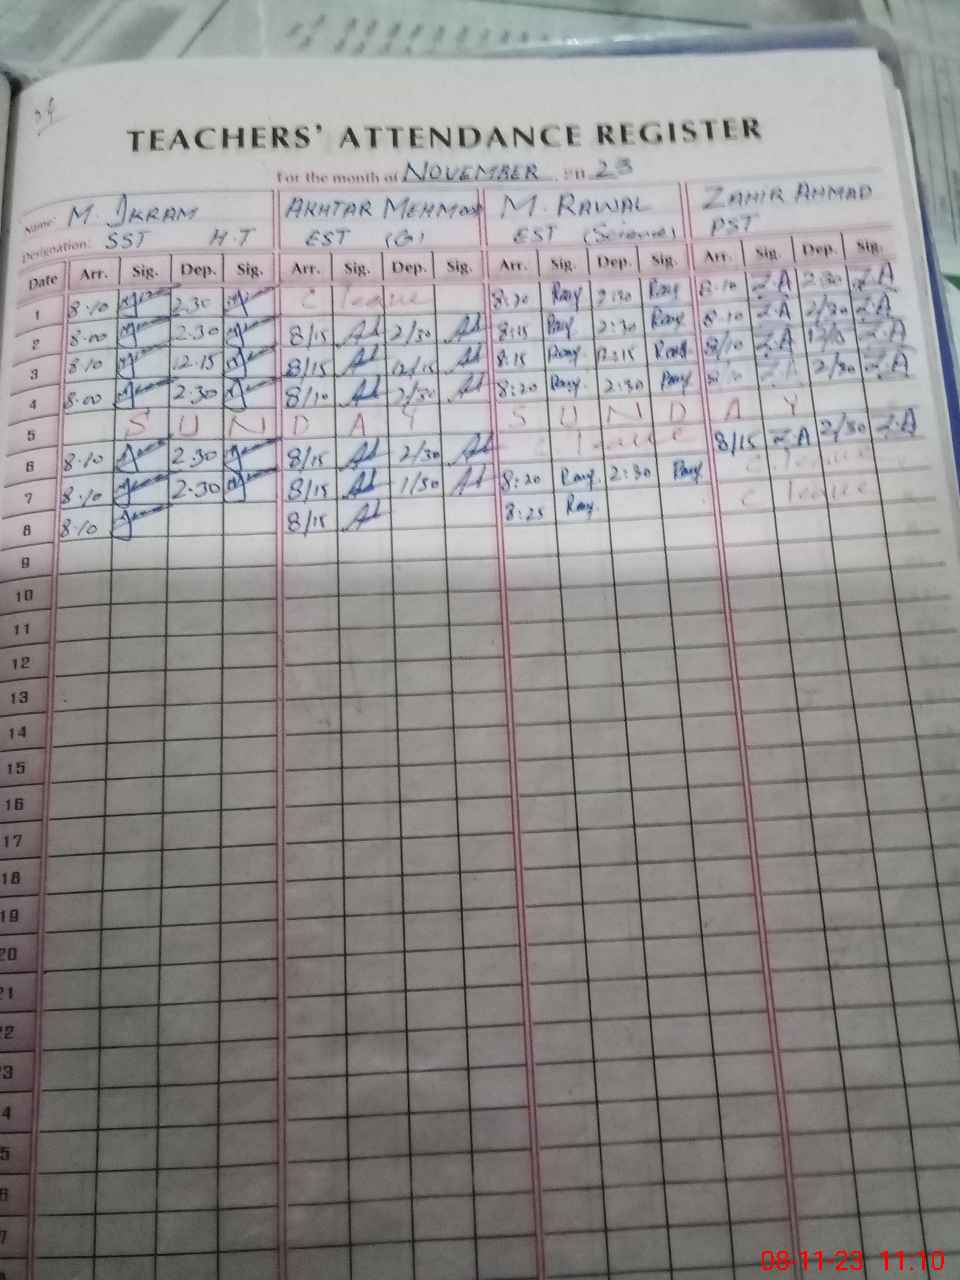 TEACHERS' ATTENDANCE REGISTER
For the month of NOVEMBER 23
Name: M. IKRAM AKHTAR MEHMOOD M. RAWAL ZAHIR AHMAD
Designation: SST H.T EST (G) EST (Science) PST
Date Arr. Sig. Dep. Sig. Arr. Sig. Dep. Sig. Arr. Sig. Dep. Sig. Arr. Sig. Dep. Sig.
1 8:10 2.30 C leave 8:20 Raw 2:30 Raw 8:10 Z.A 2:30 Z.A
2 8:00 2.30 8/15 2/30 8:15 Raw 2:30 Raw 8:10 Z.A 2/30 Z.A
3 8/10 12.15 8/15 12/15 8:15 Raw 12:15 Raw 8/10 Z.A Z.A
4 8:00 2.30 8/10 2/30 8:20 Raw 2:30 Raw 2/30 Z.A
5 S U N D A Y S U N D A Y
6 8:10 2.30 8/15 2/30 C leave 8/15 Z.A 2/30 Z.A
7 8:10 2.30 8/15 1/50 8:20 Raw 2:30 Raw C leave
8 8:10 8/15 8:25 Raw C leave
9
10
11
12
13
14
15
16
17
18
19
20
21
22
3
4
5
6
7
08-11-23 11.10